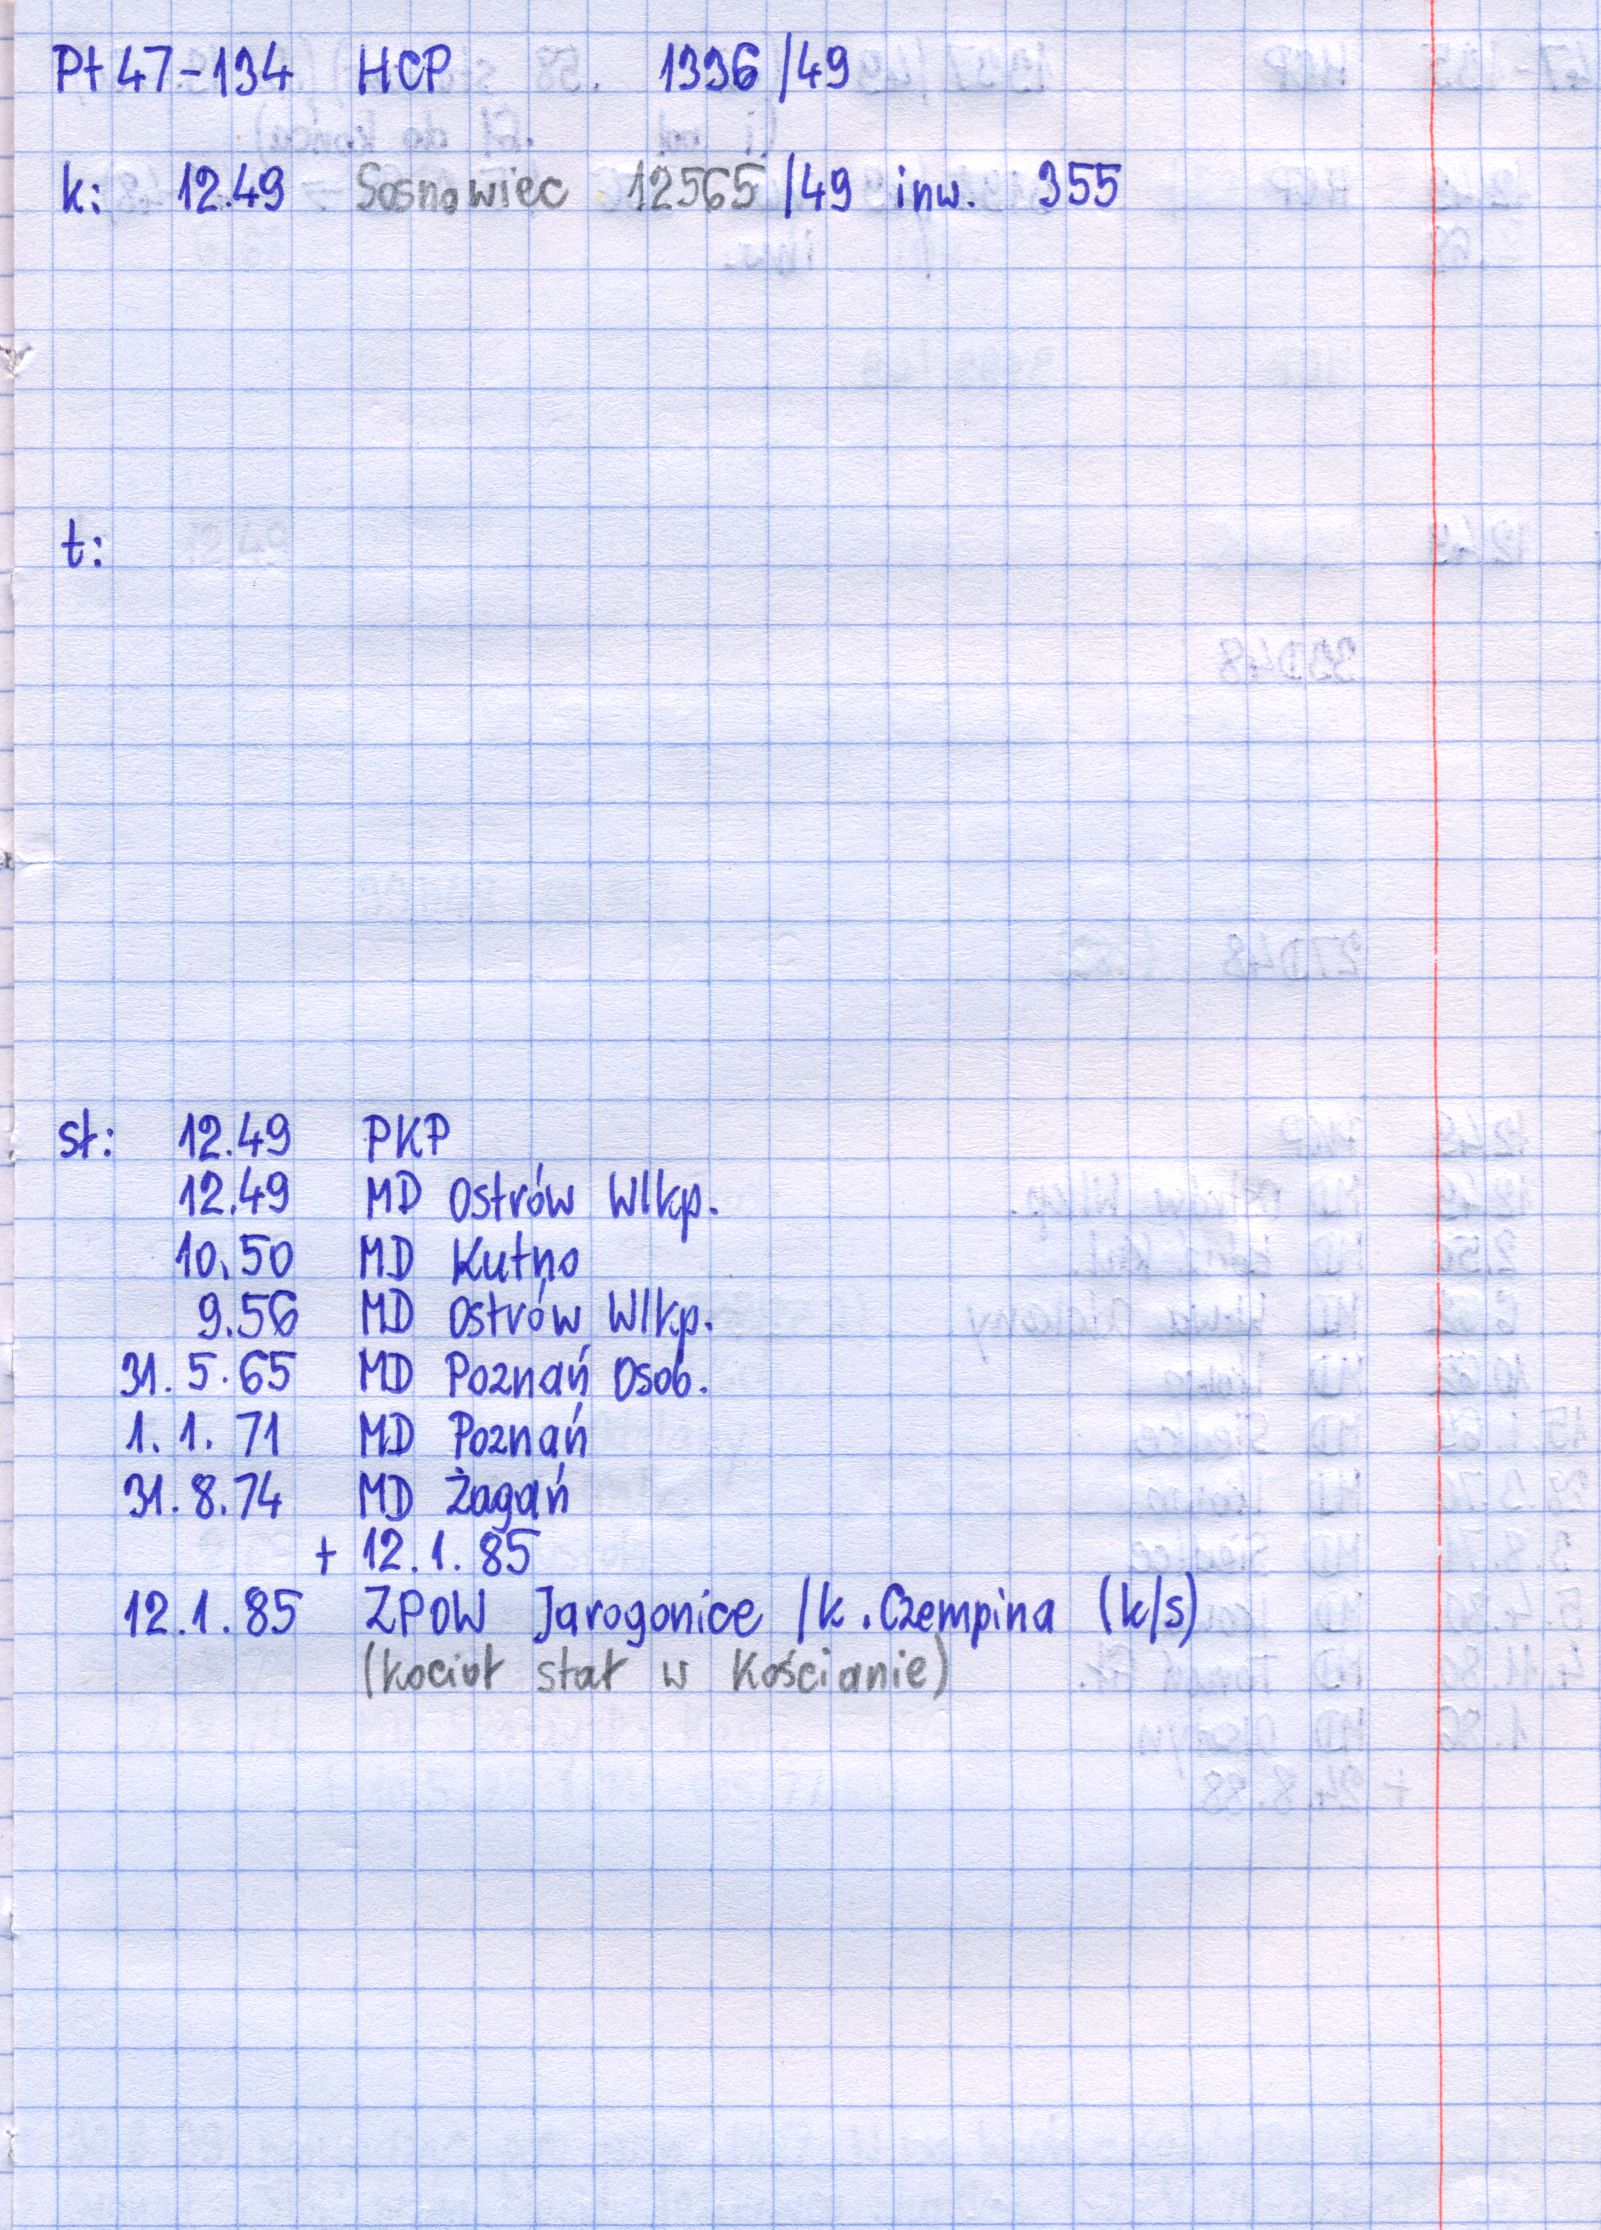 Pt 47-134 HCP 1336/49
k: 12.49 Sosnowiec 12565/49 inw. 355
t:
st: 12.49 PKP
12.49 MD Ostrów Wlkp.
10.50 MD Kutno
9.56 MD Ostrów Wlkp.
31.5.65 MD Poznań Osob.
1.1.71 MD Poznań
31.8.74 MD Żagań
+ 12.1.85
12.1.85 ZPOW Jarogonice /k. Czempina (k/s)
(kocioł stał w Kościanie)